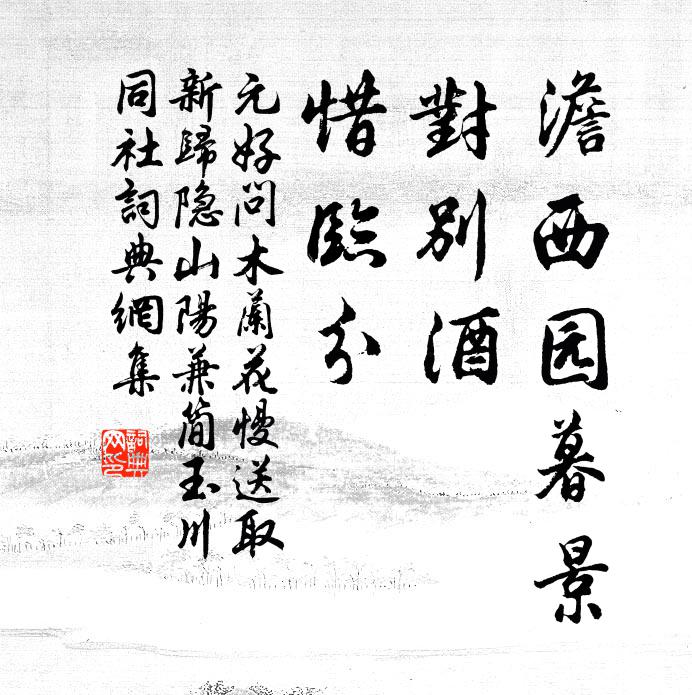 澹西园暮景
對別酒
惜臨分
元好问木蘭花慢送取
新歸隐山陽兼簡玉川
同社詞典網集
詞典
网印